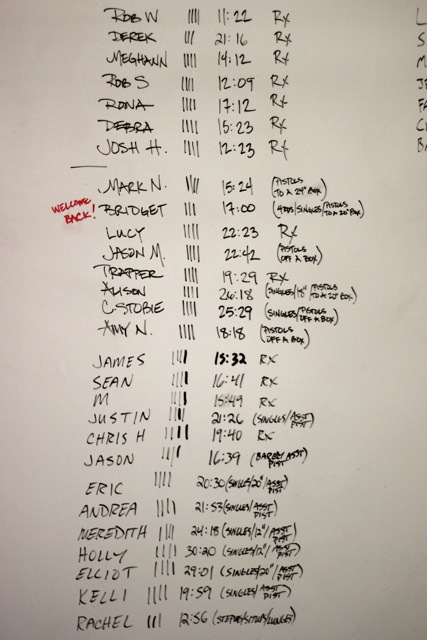 ROB W |||| 11:22 RX
DEREK ||| 21:16 RX
MEGHANN |||| 14:12 RX
ROB S |||| 12:09 RX
RONA |||| 17:12 RX
DEBRA |||| 15:23 RX
JOSH H. |||| 12:23 RX
MARK N. |||| 15:24 (PISTOLS TO A 24" BOX)
WELCOME BACK! BRIDGET ||| 17:00 (/SINGLES/PISTOLS TO A 20" BOX)
LUCY |||| 22:23 RX
JASON M. |||| 22:42 (PISTOLS OFF A BOX)
TRAPPER |||| 19:29 RX
ALISON |||| 26:18 (SINGLES/18" PISTOLS TO A 20" BOX)
C-STOBIE |||| 25:29 (SINGLES/PISTOLS OFF A BOX)
AMY N. |||| 18:18 (PISTOLS OFF A BOX)
JAMES |||| 15:32 RX
SEAN |||| 16:41 RX
M |||| 15:49 RX
JUSTIN |||| 21:26 (SINGLES/ASST PIST)
CHRIS H |||| 19:40 RX
JASON |||| 16:39 (ASST PIST)
ERIC |||| 20:30 (SINGLES/20"/ASST PIST)
ANDREA |||| 21:53 (SINGLES/ASST PIST)
MEREDITH |||| 24:18 (SINGLES/12"/ASST PIST)
HOLLY |||| 30:20 (SINGLES/12"/ASST PIST)
ELLIOT |||| 29:01 (SINGLES/20"/ASST PIST)
KELLI |||| 19:59 (SINGLES/ASST PIST)
RACHEL ||| 12:56 (STEPUPS/SITUPS/LUNGES)